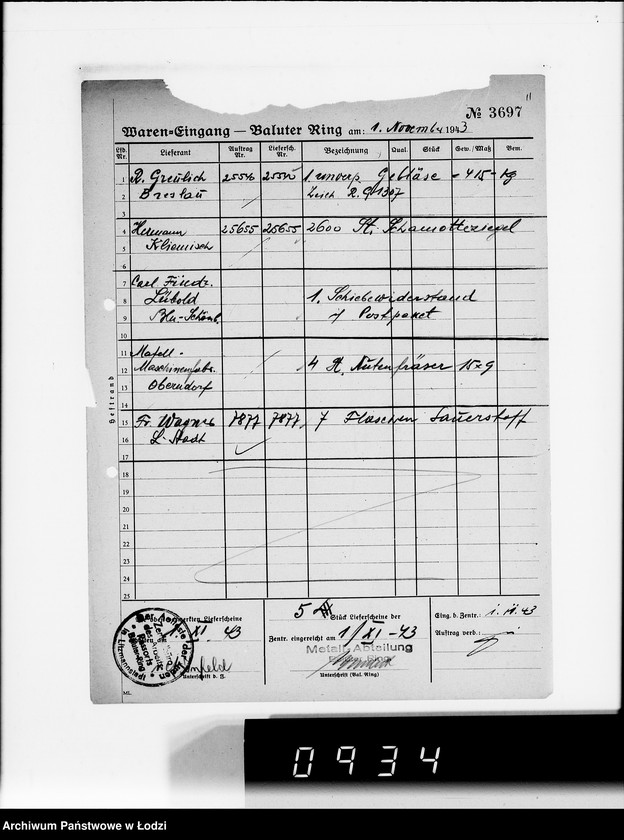 № 3697
Waren=Eingang — Baluter Ring am: 1. November 1943
Lfd. Nr. Lieferant Auftrag Nr. Liefersch. Nr. Bezeichnung Qual. Stück Gew./Maß Bem.
1 R. Greulich 25576 1 Gebläse - 415 - kg
2 Breslau Zeich R. G. 1307
3
4 Hermann 25655 25655 2600 St. Schamotteziegel
5
6
7 Carl Friedr.
8 Lübold 1. Schiebewiderstand
9 Bln.-Schönb. Postpaket
10
11 Mafell-
12 Maschinenfabr. 4 St. Nutenfräser 15x9
13 Oberndorf
14
15 Fr. Wagner 7877 7877 7 Flaschen Sauerstoff
16 L-Stadt
17
18
19
20
21
22
23
24
25
Heftrand
Lieferscheine
XI 43
Unterschrift d. Z.
5 Stück Lieferscheine der
Zentr. eingereicht am 1/XI-43
Metall Abteilung
Baluter Ring
Unterschrift (Bal. Ring)
Eing. b. Zentr.: 1.11.43
Auftrag verb.:
Der Aelteste der Juden
in Litzmannstadt
Baluter-Ring
ML.
0934
Archiwum Państwowe w Łodzi